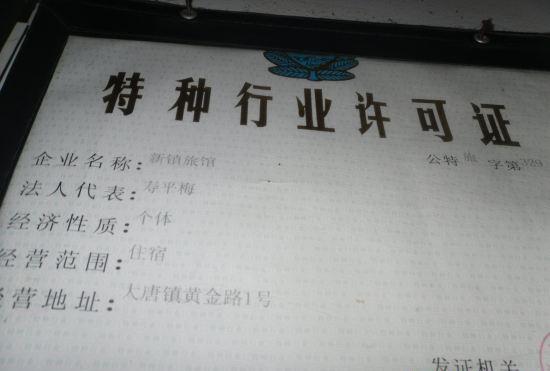 特种行业许可证
企业名称：新镇旅馆 公特旅字第329
法人代表：寿平梅
经济性质：个体
经营范围：住宿
经营地址：大唐镇黄金路1号
发证机关